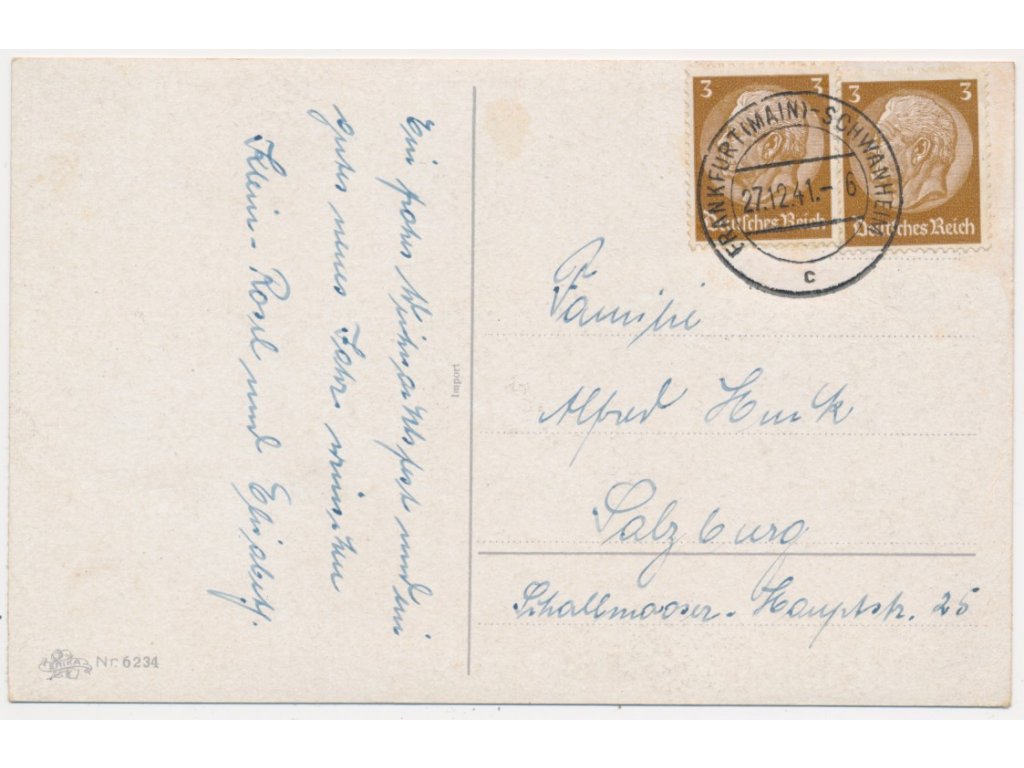 Ein frohes Weihnachtsfest und ein
gutes neues Jahr wünschen
Klein-Rosel und Elisabeth.
Import
Nr. 6234
3 3
3 3
Deutsches Reich
Deutsches Reich
FRANKFURT(MAIN)-SCHWANHEIM
27.12.41.-6
c
Familie
Alfred
Salzburg
Schallmooser-Hauptstr. 25